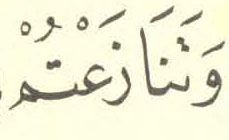 وَتَنَازَعْتُمْ